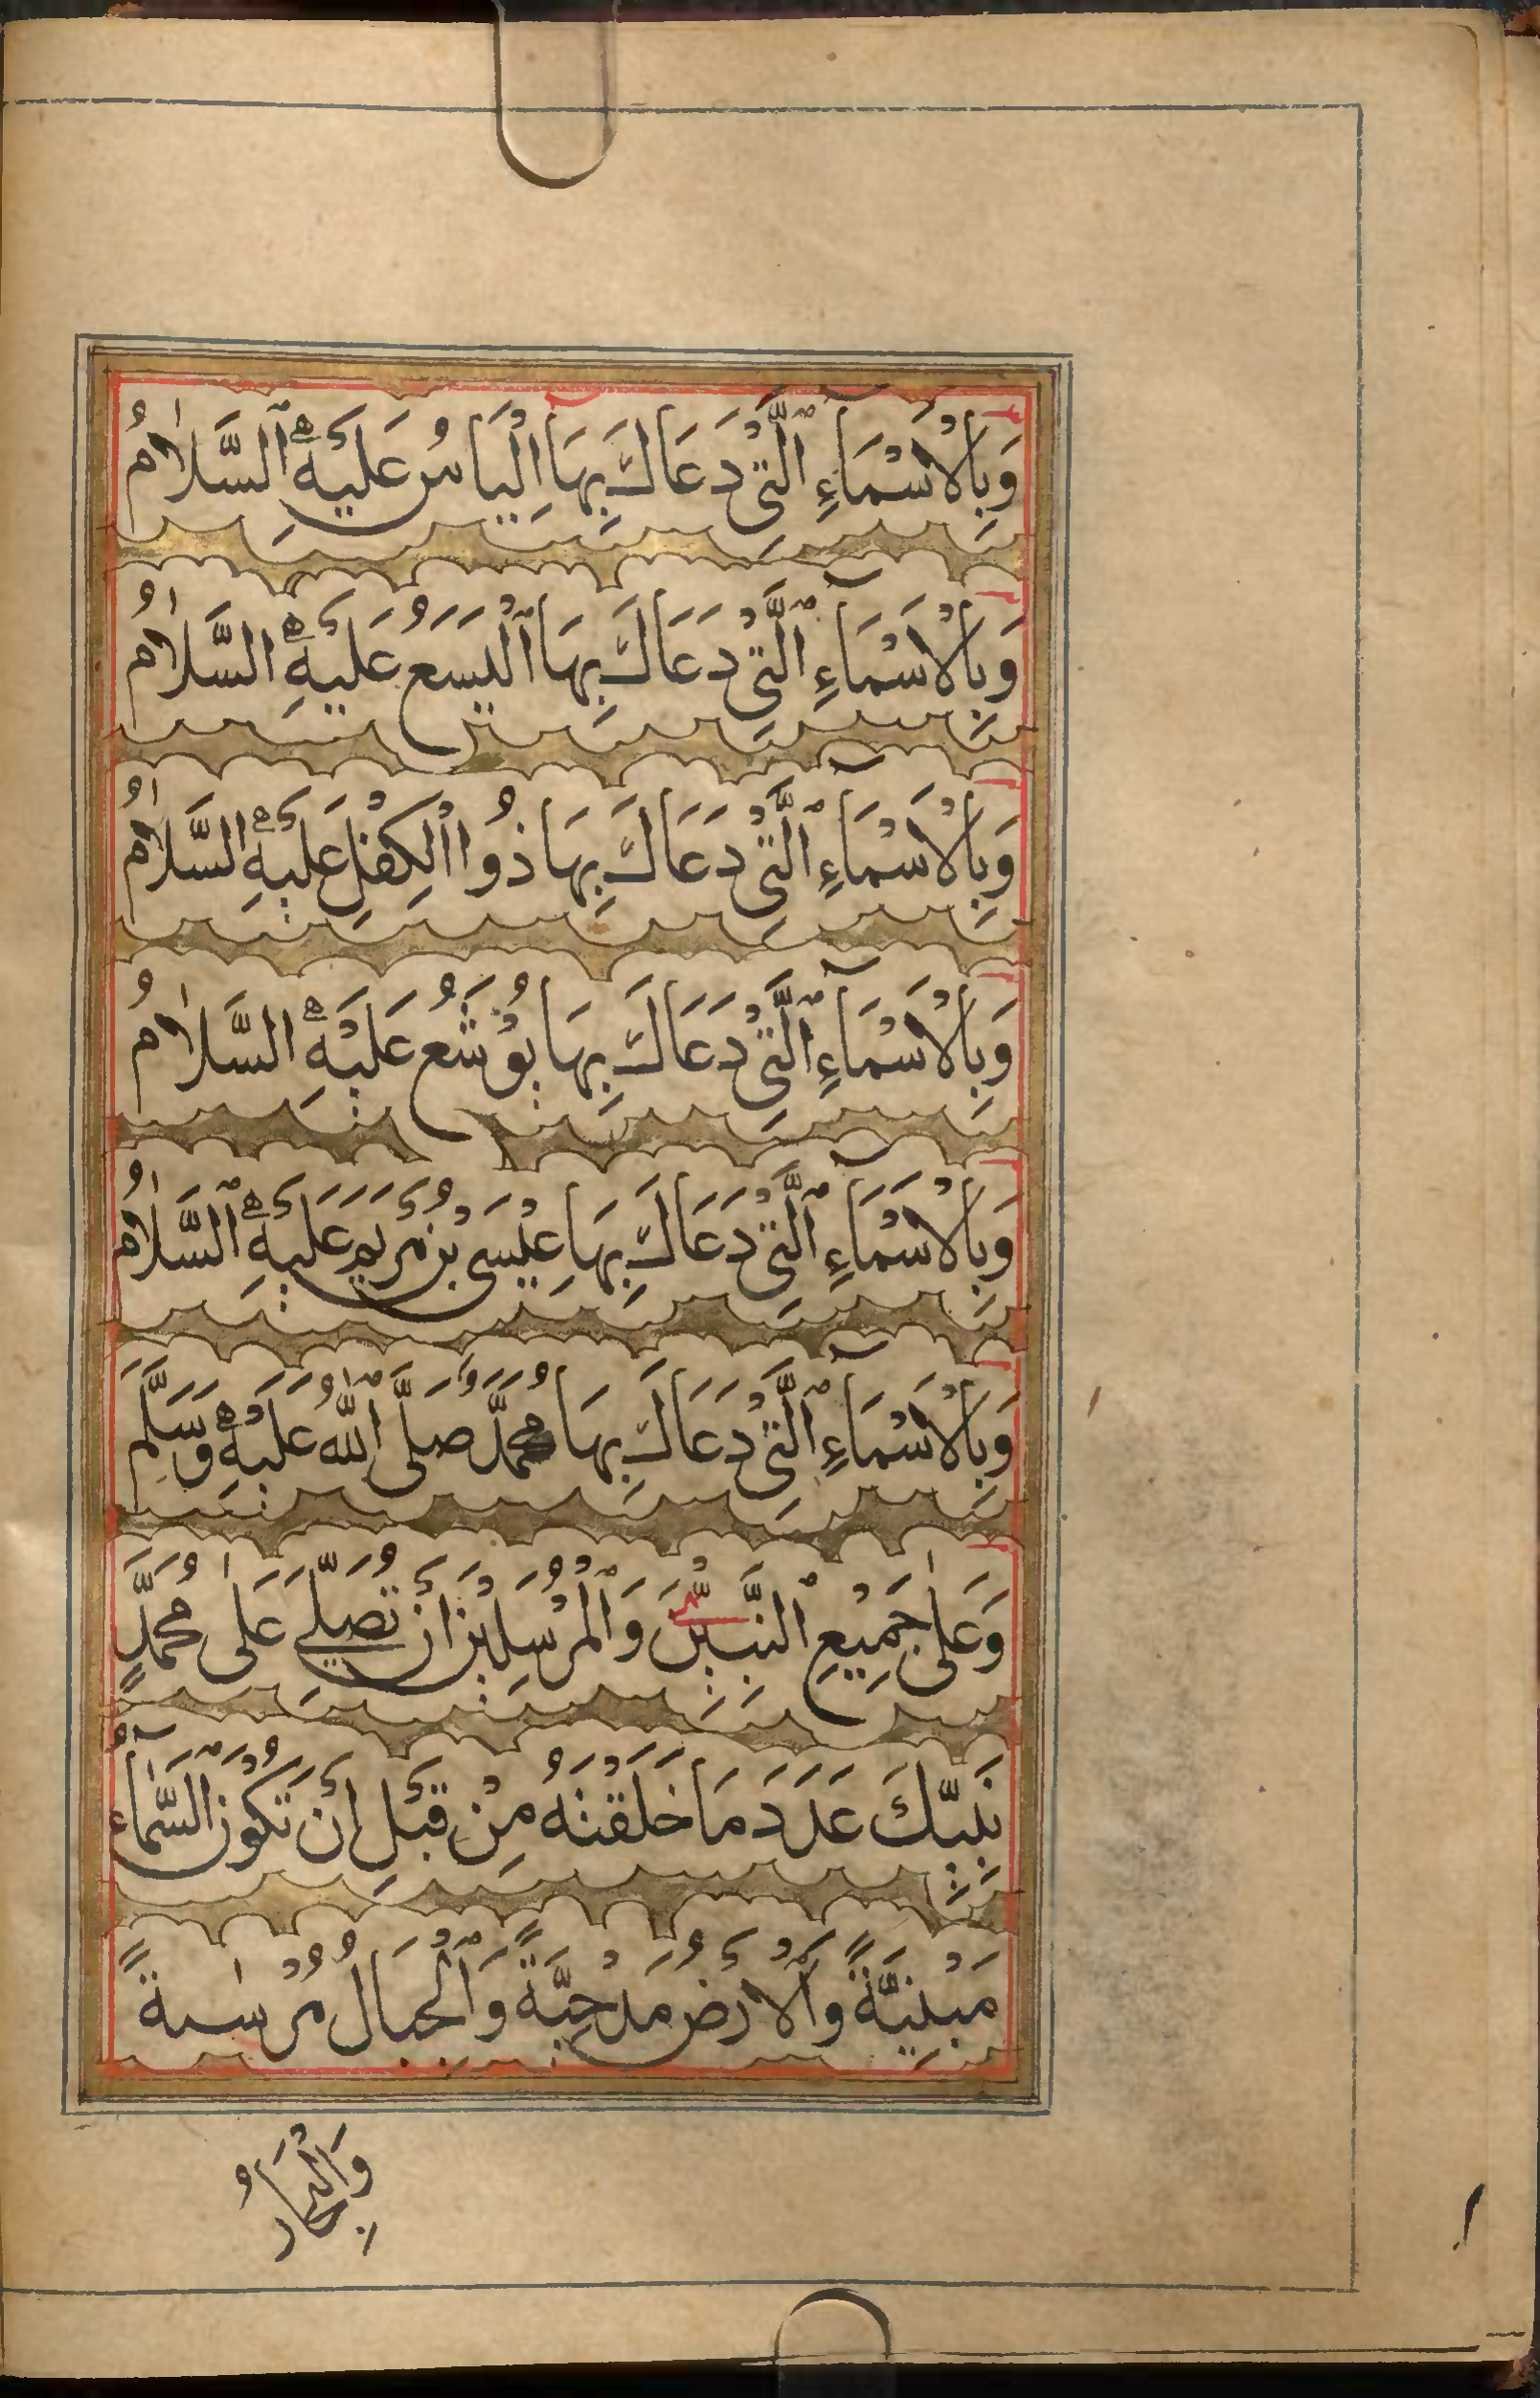 وَبِالْاَسْمَآءِ الَّتِيْ دَعَاكَ بِهَا اِلْيَاسُ عَلَيْهِ السَّلَامُ
وَبِالْاَسْمَآءِ الَّتِيْ دَعَاكَ بِهَا الْيَسَعُ عَلَيْهِ السَّلَامُ
وَبِالْاَسْمَآءِ الَّتِيْ دَعَاكَ بِهَا ذُوا الْكِفْلِ عَلَيْهِ السَّلَامُ
وَبِالْاَسْمَآءِ الَّتِيْ دَعَاكَ بِهَا يُوْشَعُ عَلَيْهِ السَّلَامُ
وَبِالْاَسْمَآءِ الَّتِيْ دَعَاكَ بِهَا عِيْسَى بْنُ مَرْيَمَ عَلَيْهِ السَّلَامُ
وَبِالْاَسْمَآءِ الَّتِيْ دَعَاكَ بِهَا مُحَمَّدٌ صَلَّى اللّٰهُ عَلَيْهِ وَسَلَّمَ
وَعَلٰى جَمِيْعِ النَّبِيِّيْنَ وَالْمُرْسَلِيْنَ اَنْ تُصَلِّيَ عَلٰى مُحَمَّدٍ
نَبِيِّكَ عَدَدَ مَا خَلَقْتَهُ مِنْ قَبْلِ اَنْ تَكُوْنَ السَّمَآءُ
مَبْنِيَّةً وَالْاَرْضُ مَدْحِيَّةً وَالْجِبَالُ مُرْسٰيةً
وَالْبِحَارُ